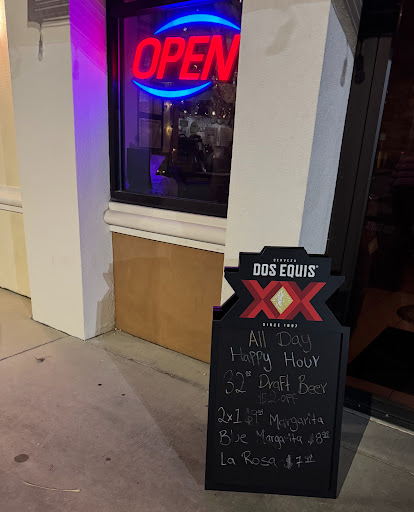 OPEN
CERVEZA
DOS EQUIS
XX
SINCE 1897
All Day
Happy Hour
32oz Draft Beer
$2 OFF
2x1 $9.99 Margarita
Blue Margarita $8.99
La Rosa $7.99